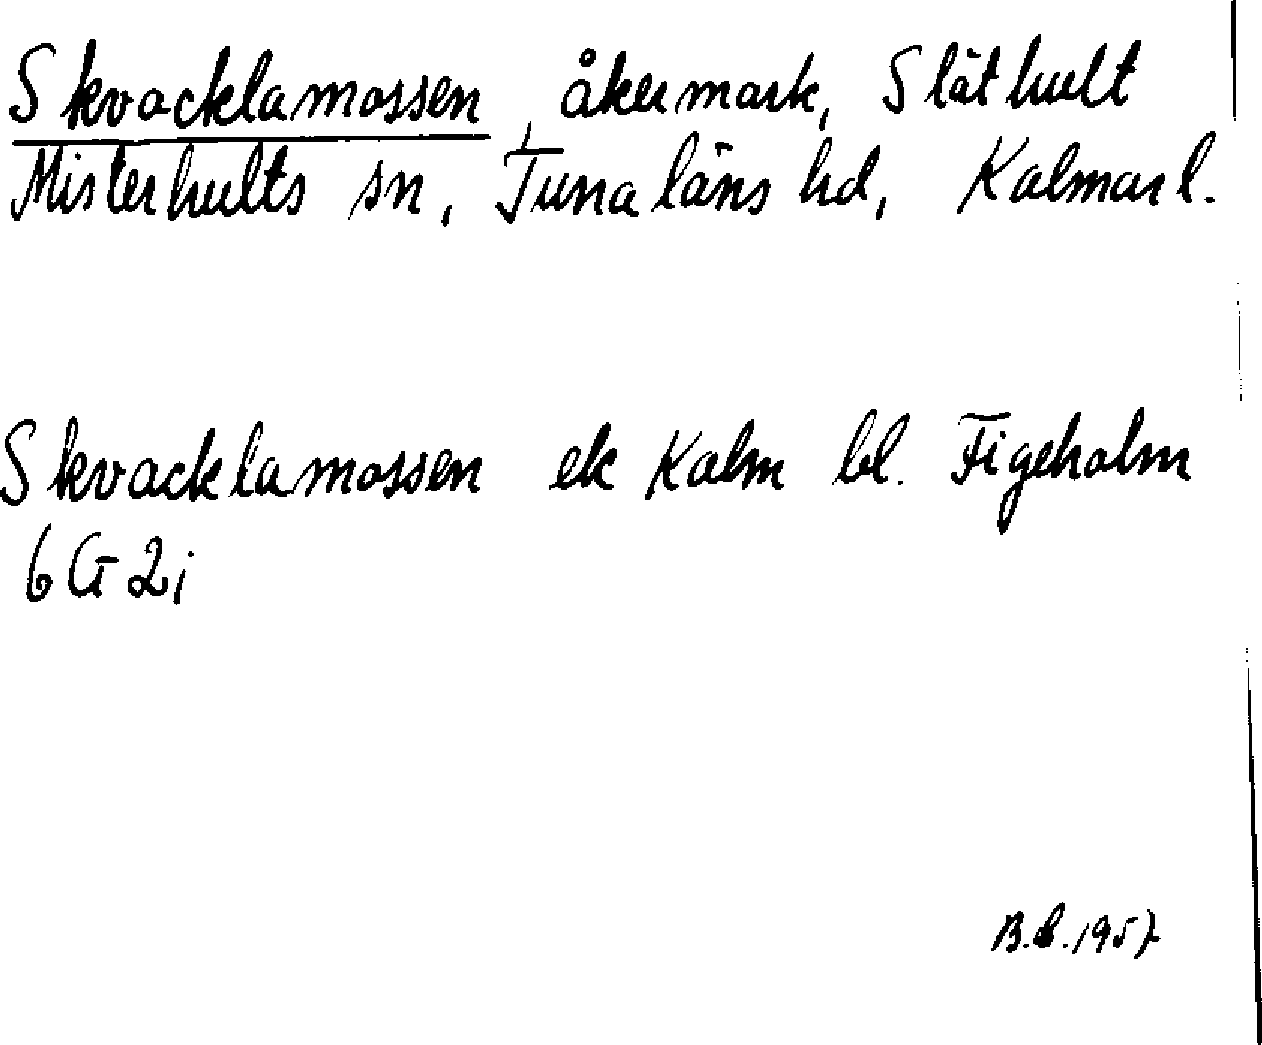 Skvacklamossen, åkermark, Släthult
Misterhults sn, Tunaläns hd, Kalmar l.
Skvacklamossen ek Kalm bl. Figeholm
6G2i
B.L.1957